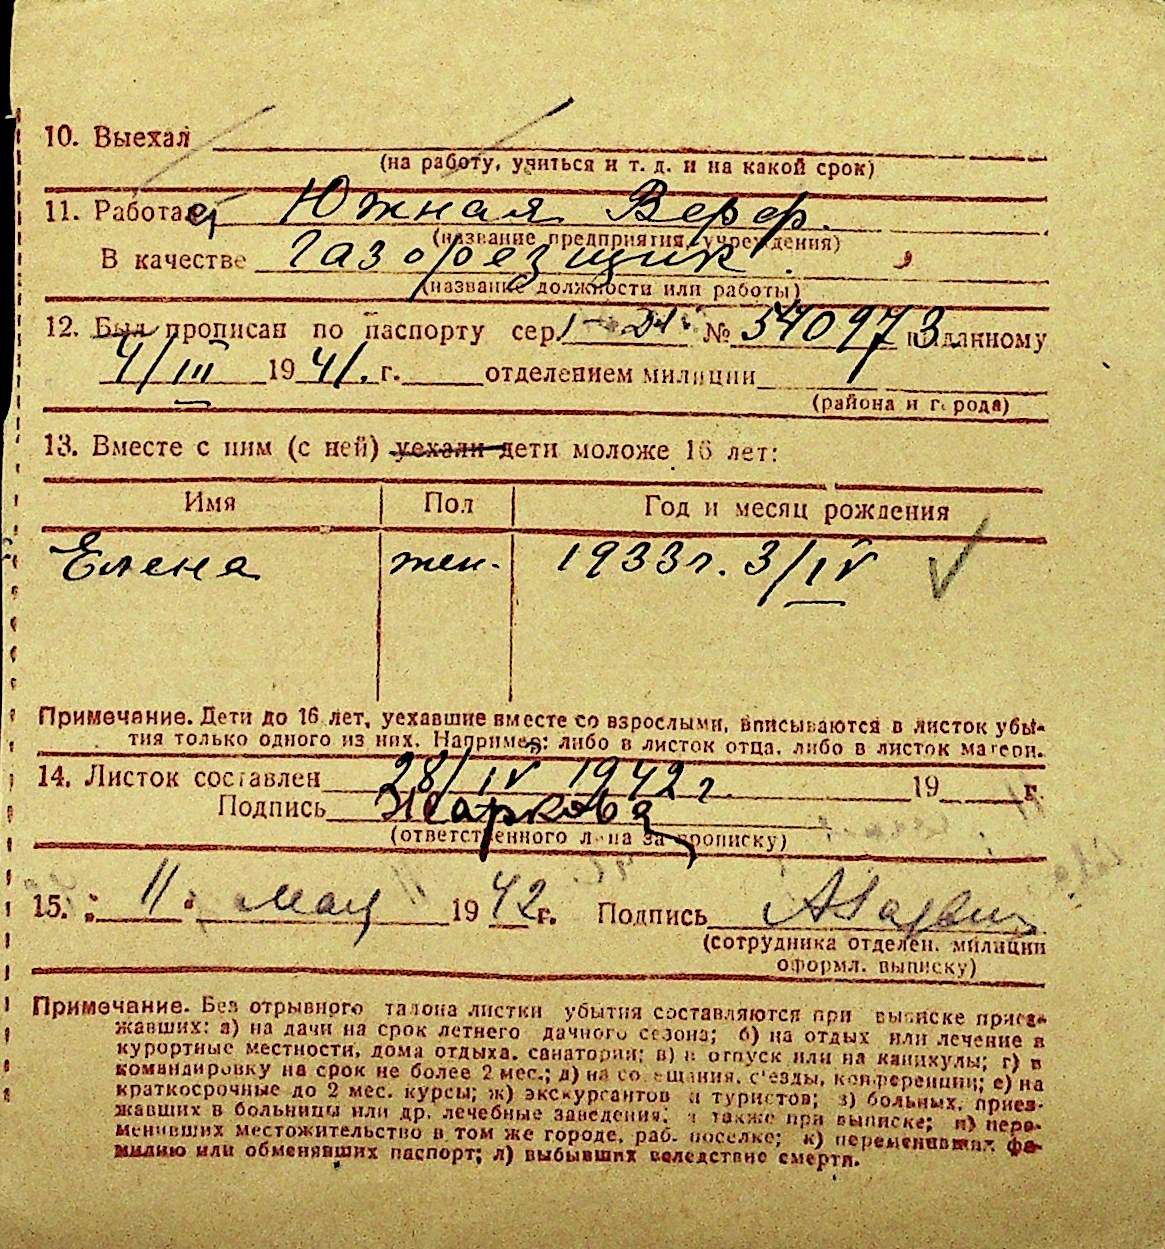 10. Выехал
(на работу, учиться и т. д. и на какой срок)
11. Работает Южная Верф.
(название предприятия, учреждения)
В качестве газорезщик.
(название должности или работы)
12. Был прописан по паспорту сер. № 540973 выданному
4/III 1941. г. отделением милиции
(района и города)
13. Вместе с ним (с ней) уехали дети моложе 16 лет:
Имя Пол Год и месяц рождения
Елена жен. 1933г. 3/IV
Примечание. Дети до 16 лет, уехавшие вместе со взрослыми, вписываются в листок убы-
тия только одного из них. Например: либо в листок отца, либо в листок матери.
14. Листок составлен 28/IV 1942 г. 19 г.
Подпись Жаркова
(ответственного лица за прописку)
15. „11" мая 1942 г. Подпись
(сотрудника отделен. милиции
оформл. выписку)
Примечание. Без отрывного талона листки убытия составляются при выписке приез-
жавших: а) на дачи на срок летнего дачного сезона; б) на отдых или лечение в
курортные местности, дома отдыха, санатории; в) в отпуск или на каникулы; г) в
командировку на срок не более 2 мес.; д) на совещания, с'езды, конференции; е) на
краткосрочные до 2 мес. курсы; ж) экскурсантов и туристов; з) больных, приез-
жавших в больницы или др. лечебные заведения; а также при выписке; и) пере-
менивших местожительство в том же городе, раб. поселке; к) переменивших фа-
милию или обменявших паспорт; л) выбывших вследствие смерти.